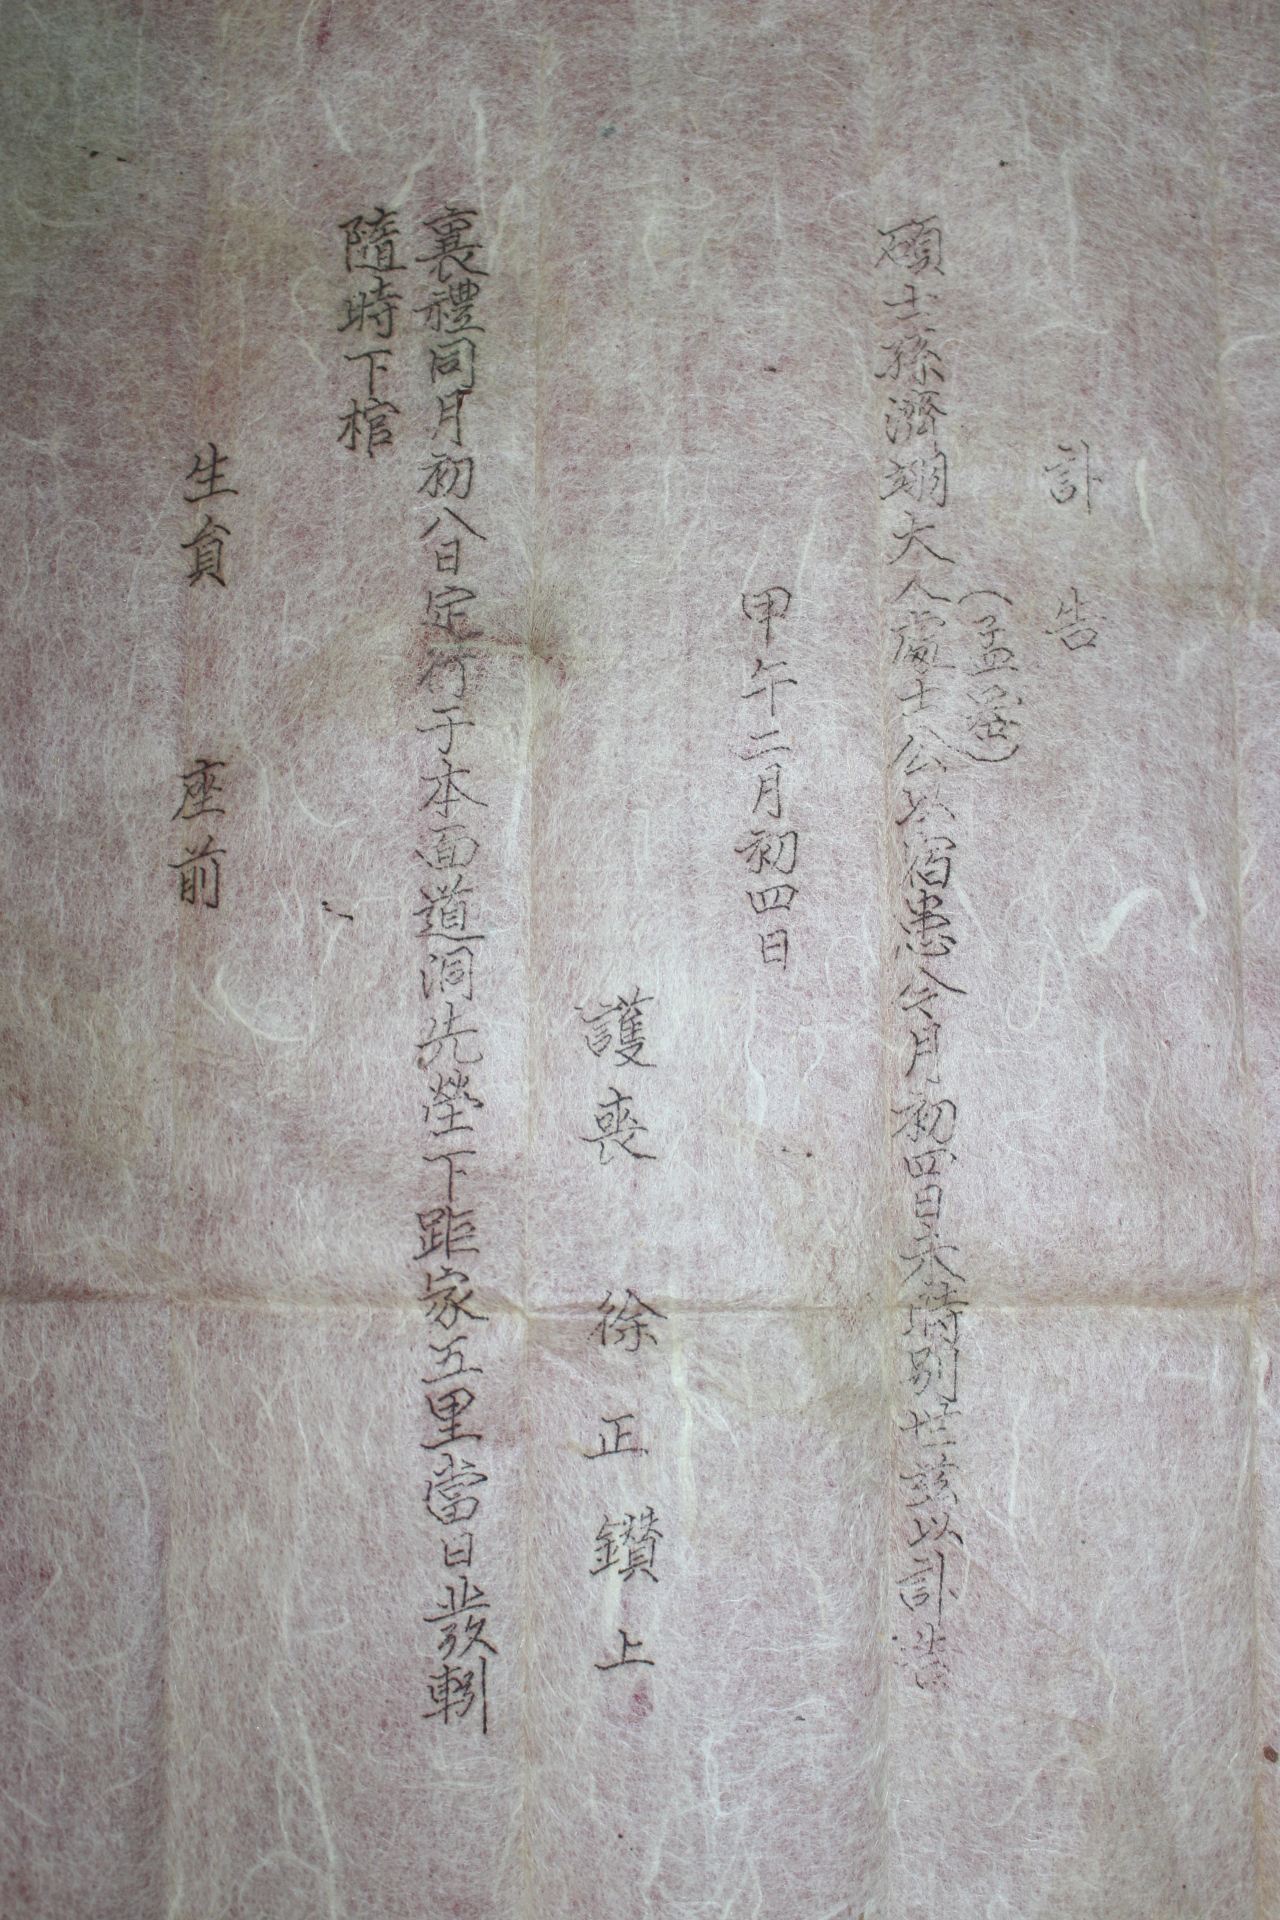 訃告
(孟釜)
碩士孫濟翊大人處士公以宿患今月初四日未時別世玆以訃告
甲午二月初四日
護喪 徐正鑽上
襄禮同月初八日定行于本面道洞先塋下距家五里當日發靷
隨時下棺
生員 座前